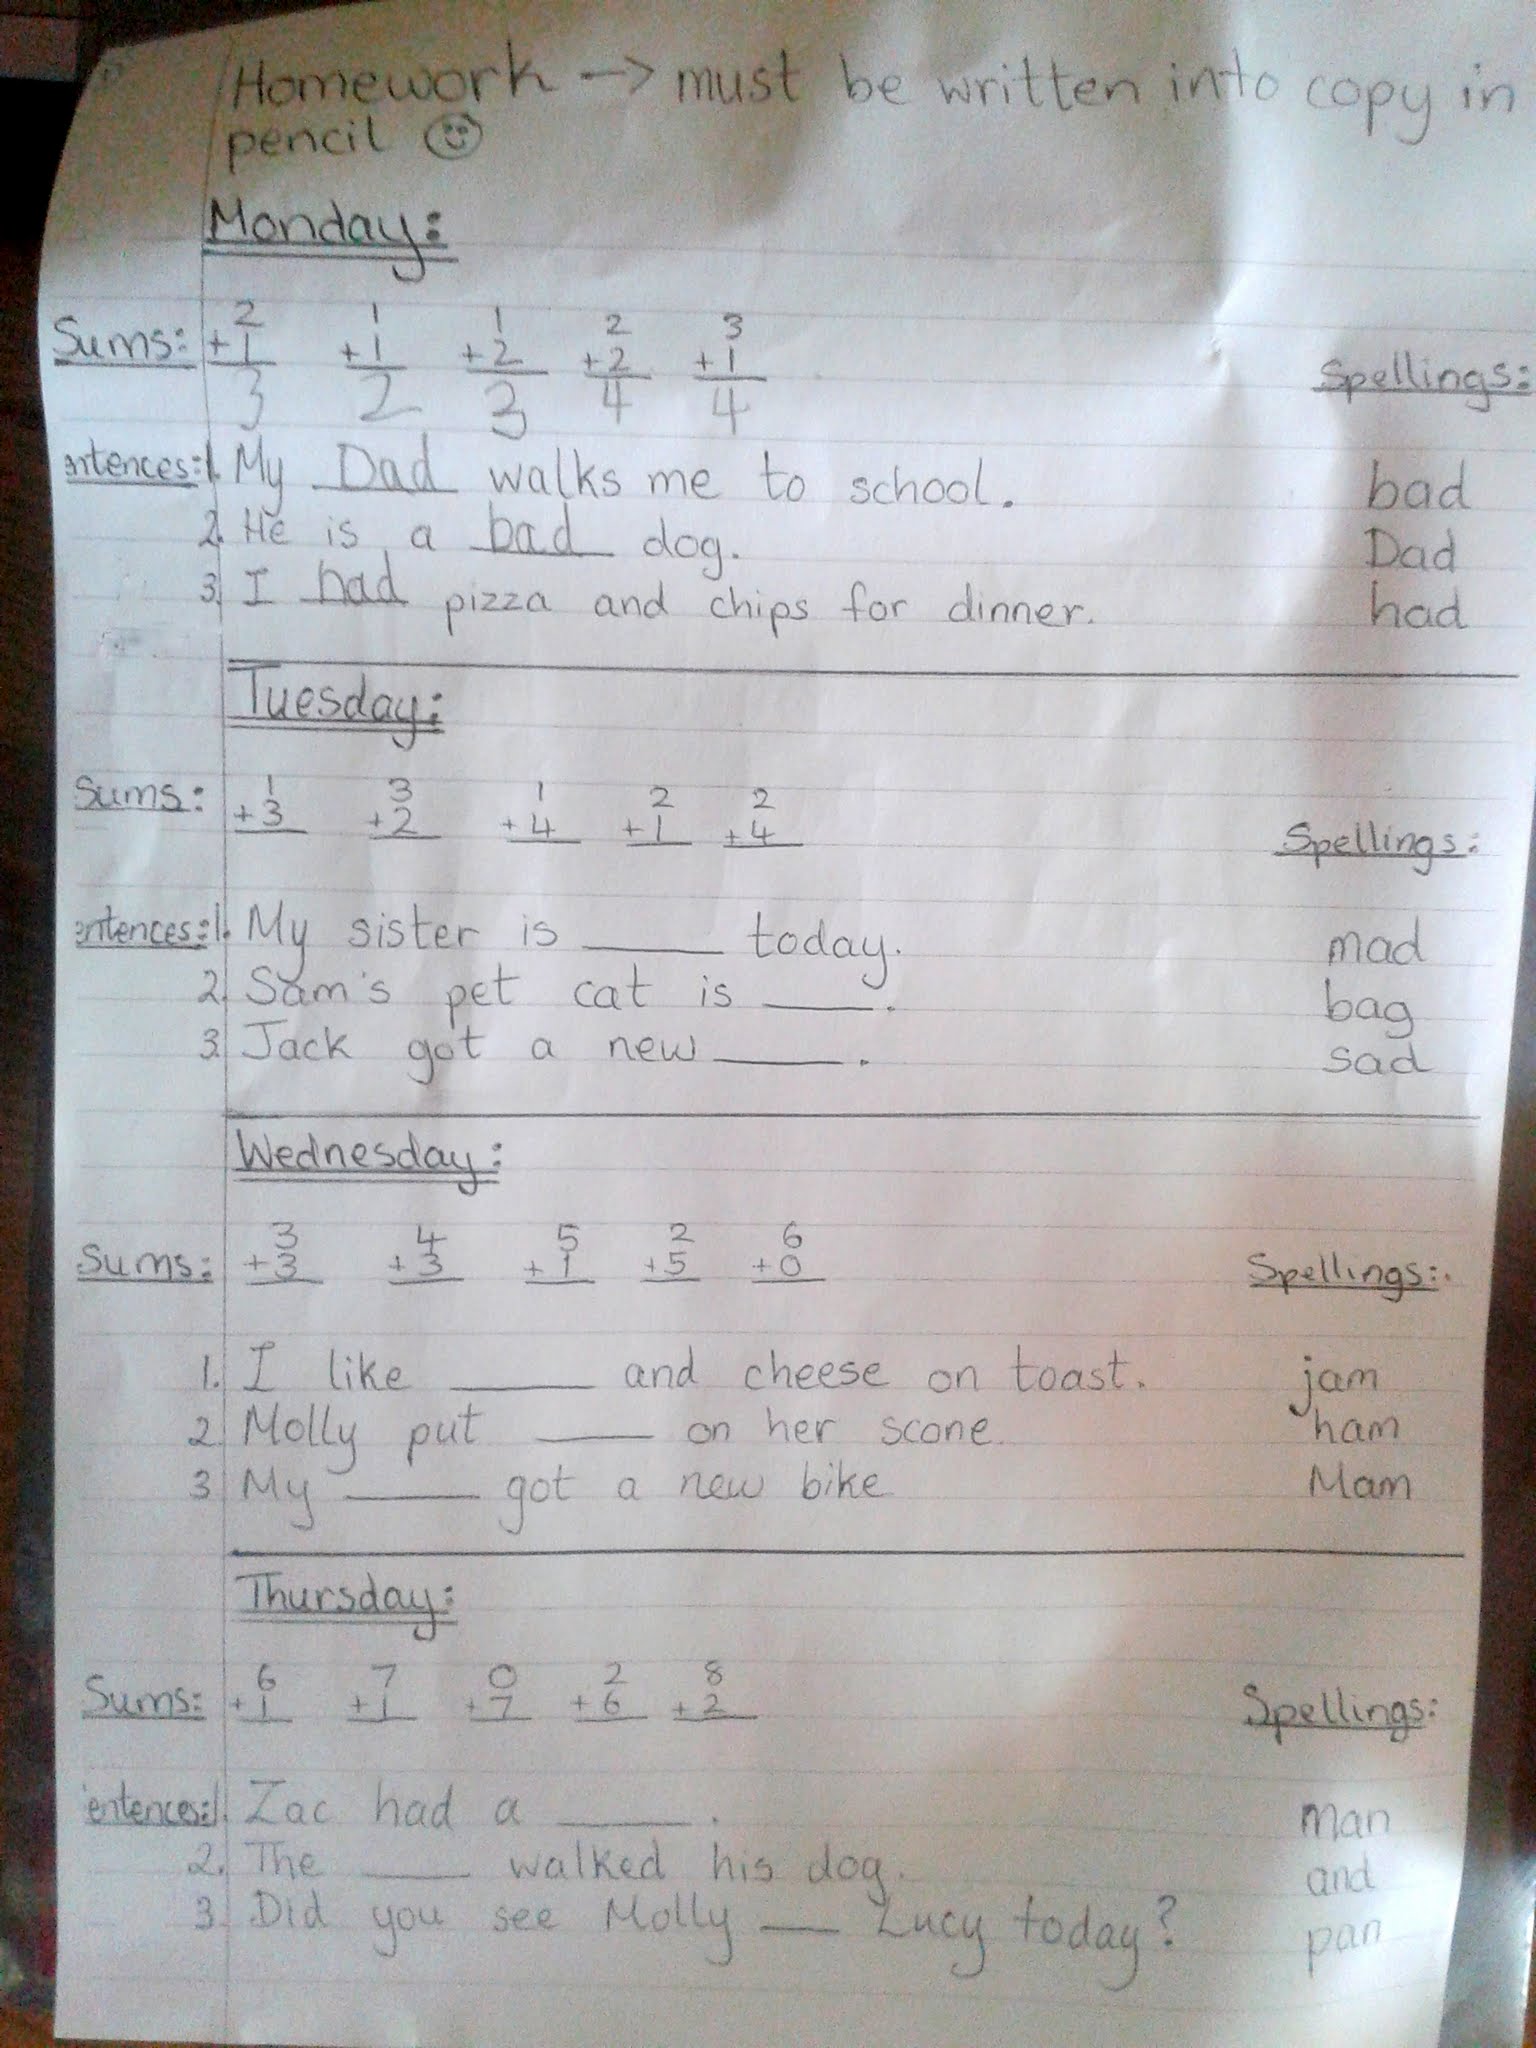 Homework → must be written into copy in
pencil ☺
Monday:
Sums: 2 1 1 2 3
+1 +1 +2 +2 +1
3 2 3 4 4
Spellings:
entences: 1. My Dad walks me to school. bad
2. He is a bad dog. Dad
3. I had pizza and chips for dinner. had
Tuesday:
Sums: 1 3 1 2 2
+3 +2 +4 +1 +4
Spellings:
entences: 1. My sister is ____ today. mad
2. Sam's pet cat is ____. bag
3. Jack got a new ____. sad
Wednesday:
3 4 5 2 6
Sums: +3 +3 +1 +5 +0 Spellings:
1. I like ____ and cheese on toast. jam
2. Molly put ____ on her scone. ham
3 My ____ got a new bike Mam
Thursday:
6 7 0 2 8
Sums: +1 +1 +7 +6 +2 Spellings:
entences: 1. Zac had a ____. man
2. The ____ walked his dog. and
3. Did you see Molly ____ Lucy today? pan